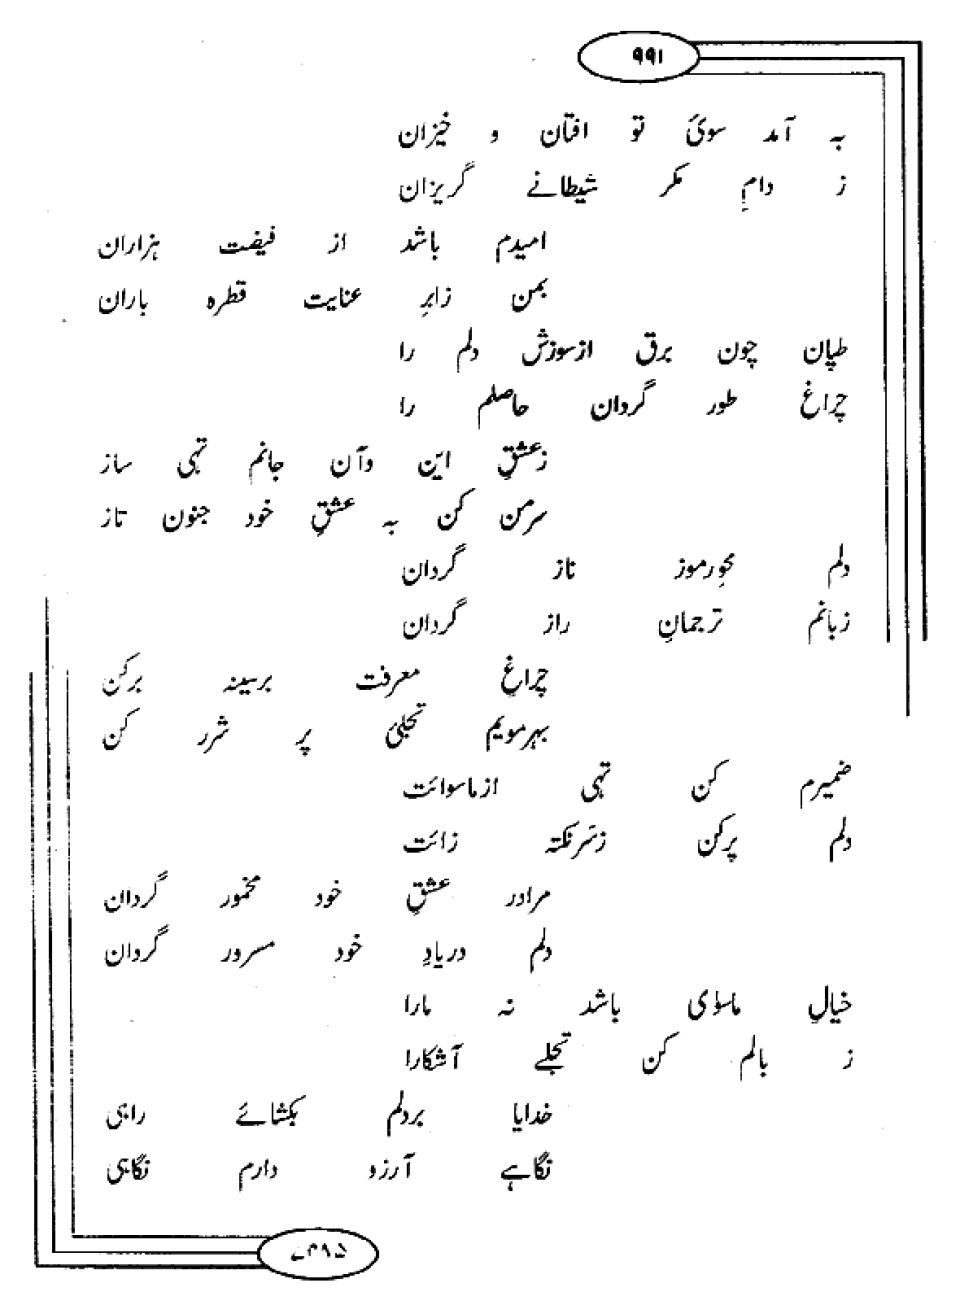 ۹۹۱
بہ آمد سویٔ تو افتان و خیزان
ز دامِ مکر شیطانے گریزان
امیدم باشد از فیضت ہزاران
بمن زابرِ عنایت قطرہ باران
طپان چون برق ازسوزش دلم را
چراغِ طور گردان حاصلم را
زعشقِ این وآن جانم تہی ساز
سرمن کن بہ عشقِ خود جنون تاز
دلم محوِرموز ناز گردان
زبانم ترجمانِ راز گردان
چراغِ معرفت برسینہ برکن
بہرمویم تجلیٔ پر شرر کن
ضمیرم کن تہی ازماسوائت
دلم پرکن زسرنکتہ زائت
مرادر عشقِ خود مخمور گردان
دلم دریادِ خود مسرور گردان
خیالِ ماسوٰی باشد نہ مارا
ز بالم کن تجلے آشکارا
خدایا بردلم بکشائے راہی
نگاہے آرزو دارم نگاہی